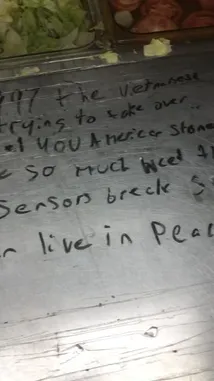 the Vietnamese
trying to take over..
YOU American Stone
so much weed
Sensors break
live in Peac